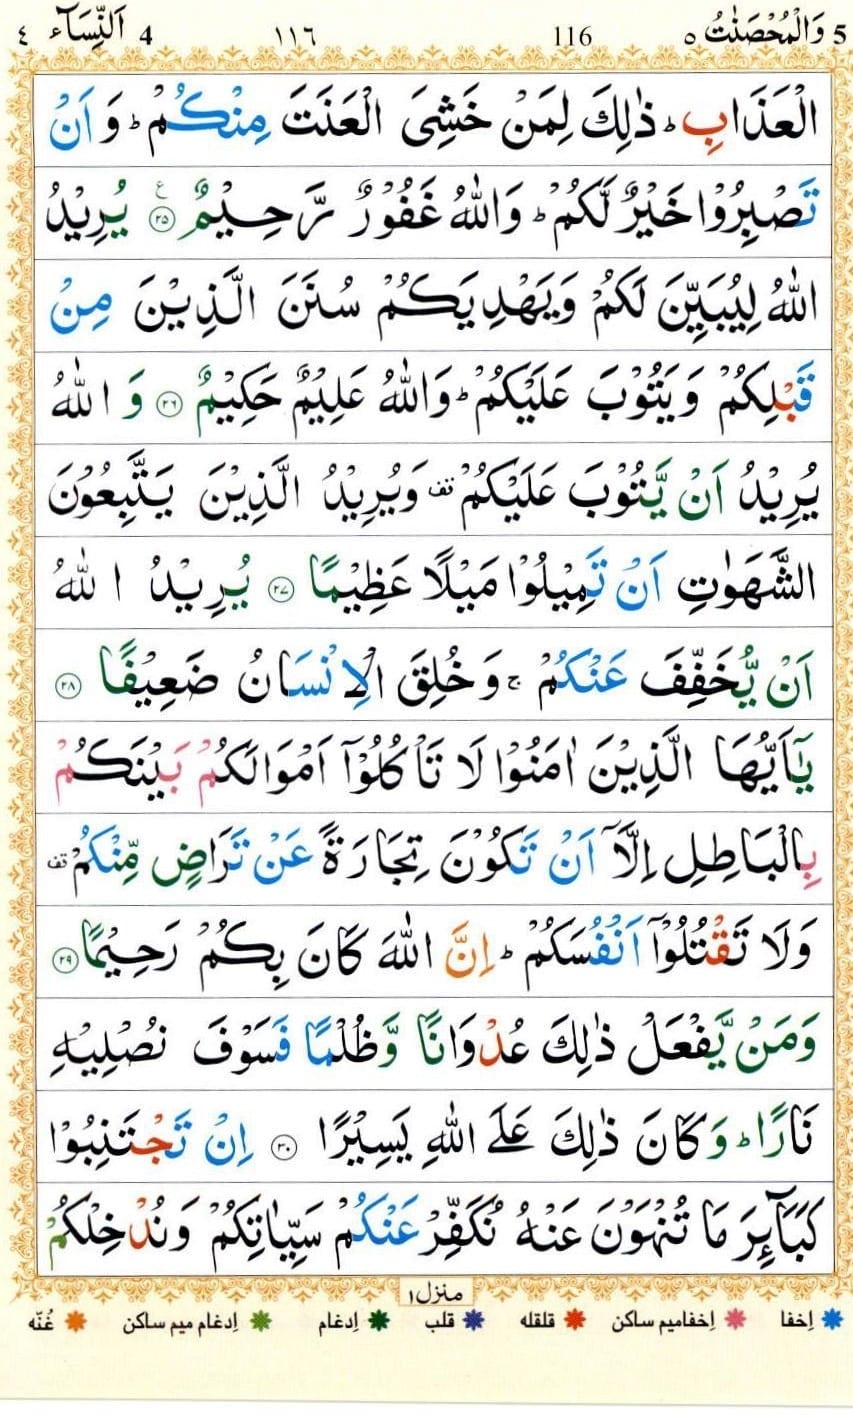 5 وَالْمُحْصَنٰتُ ٥ 116 ١١٦ 4 اَلنِّسَآء ٤
الْعَذَابِ ؕ ذٰلِكَ لِمَنْ خَشِیَ الْعَنَتَ مِنْكُمْ ؕ وَ اَنْ
تَصْبِرُوْا خَیْرٌ لَّكُمْ ؕ وَاللّٰهُ غَفُوْرٌ رَّحِیْمٌ ۧ ﴿۲۵﴾ یُرِیْدُ
اللّٰهُ لِیُبَیِّنَ لَكُمْ وَیَهْدِیَكُمْ سُنَنَ الَّذِیْنَ مِنْ
قَبْلِكُمْ وَیَتُوْبَ عَلَیْكُمْ ؕ وَاللّٰهُ عَلِیْمٌ حَكِیْمٌ ﴿۲۶﴾ وَ اللّٰهُ
یُرِیْدُ اَنْ یَّتُوْبَ عَلَیْكُمْ قف وَیُرِیْدُ الَّذِیْنَ یَتَّبِعُوْنَ
الشَّهَوٰتِ اَنْ تَمِیْلُوْا مَیْلًا عَظِیْمًا ﴿۲۷﴾ یُرِیْدُ اللّٰهُ
اَنْ یُّخَفِّفَ عَنْكُمْ ۚ وَخُلِقَ الْاِنْسَانُ ضَعِیْفًا ﴿۲۸﴾
یٰۤاَیُّهَا الَّذِیْنَ اٰمَنُوْا لَا تَاْكُلُوْۤا اَمْوَالَكُمْ بَیْنَكُمْ
بِالْبَاطِلِ اِلَّاۤ اَنْ تَكُوْنَ تِجَارَةً عَنْ تَرَاضٍ مِّنْكُمْ قف
وَلَا تَقْتُلُوْۤا اَنْفُسَكُمْ ؕ اِنَّ اللّٰهَ كَانَ بِكُمْ رَحِیْمًا ﴿۲۹﴾
وَمَنْ یَّفْعَلْ ذٰلِكَ عُدْوَانًا وَّظُلْمًا فَسَوْفَ نُصْلِیْهِ
نَارًا ؕ وَكَانَ ذٰلِكَ عَلَی اللّٰهِ یَسِیْرًا ﴿۳۰﴾ اِنْ تَجْتَنِبُوْا
كَبَآىِٕرَ مَا تُنْهَوْنَ عَنْهُ نُكَفِّرْ عَنْكُمْ سَیِّاٰتِكُمْ وَنُدْخِلْكُمْ
منزل ١
اِخفا اِخفامیم ساکن قلقله قلب اِدغام اِدغام میم ساکن غُنّه